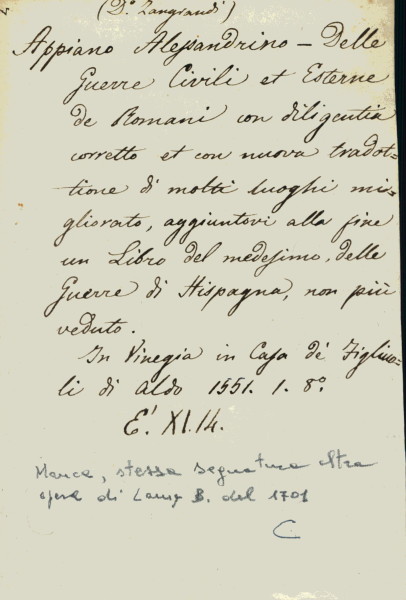 (Do. Zangrandi)
Appiano Alessandrino - Delle
Guerre Civili et Esterne
de Romani con diligentia
corretto et con nuova tradot=
tione di molti luoghi mi=
gliorato, aggiuntovi alla fine
un Libro del medesimo, delle
Guerre di Hispagna, non più
veduto.
In Vinegia in Casa de' Figliuo=
li di Aldo 1551. 1. 8°.
E'. XI.14.
Manca, stessa segnatura altra
opera di B. del 1701
C